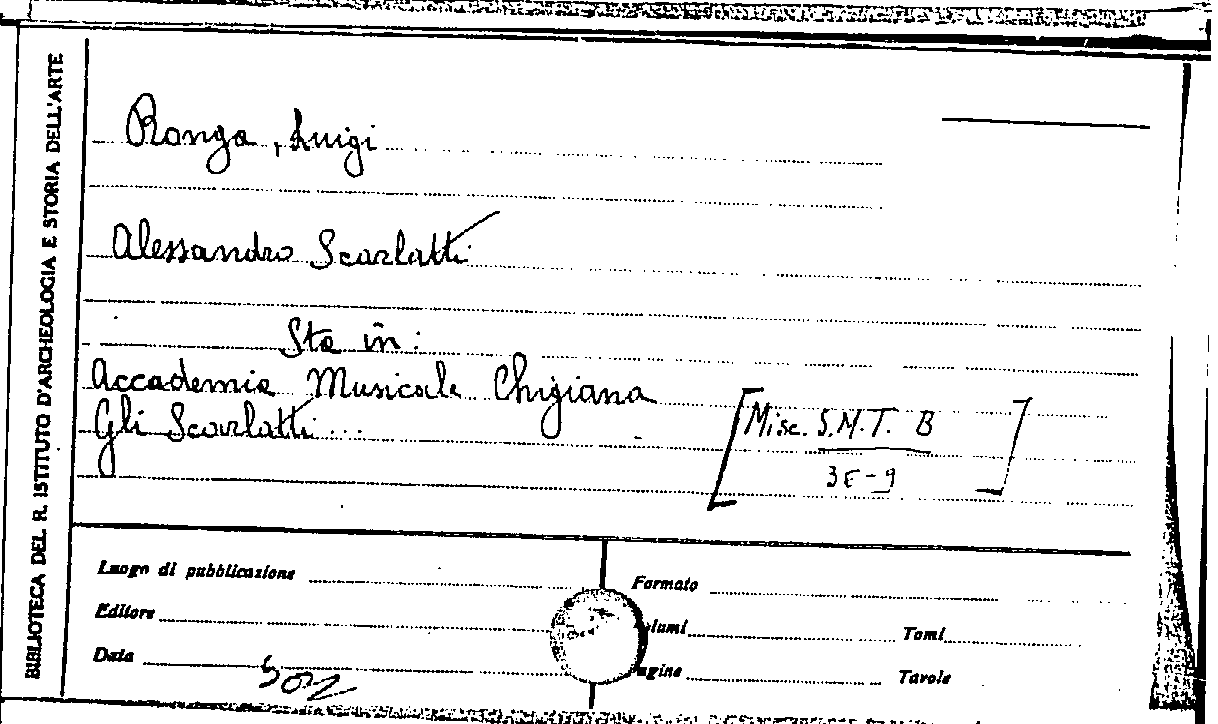 BIBLIOTECA DEL R. ISTITUTO D'ARCHEOLOGIA E STORIA DELL'ARTE
Ronga, Luigi
Alessandro Scarlatti
Sta in:
Accademia Musicale Chigiana
Gli Scarlatti...
[Misc. S.M.T. B
3E-9]
Luogo di pubblicazione
Formato
Editore
lumi
Tomi
Data
agine
Tavole